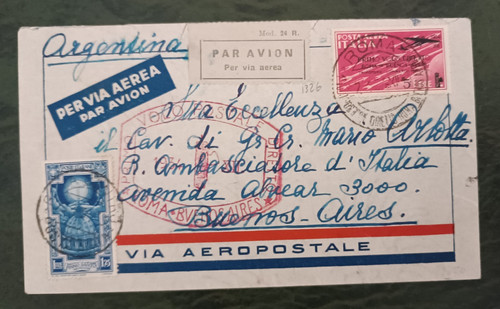 Mod. 24 R.
Argentina
PAR AVION
Per via aerea
POSTA AEREA
ITALIA
PER VIA AEREA
PAR AVION
1326
Sua Eccellenza
il Cav. di Gr. Cr. Mario Arlotta
R. Ambasciatore d'Italia
Avenida Alvear 3000.
Buenos-Aires.
VOLO POSTALE DIRETTO
ROMA-BUENOS AIRES
1,25
VIA AEROPOSTALE